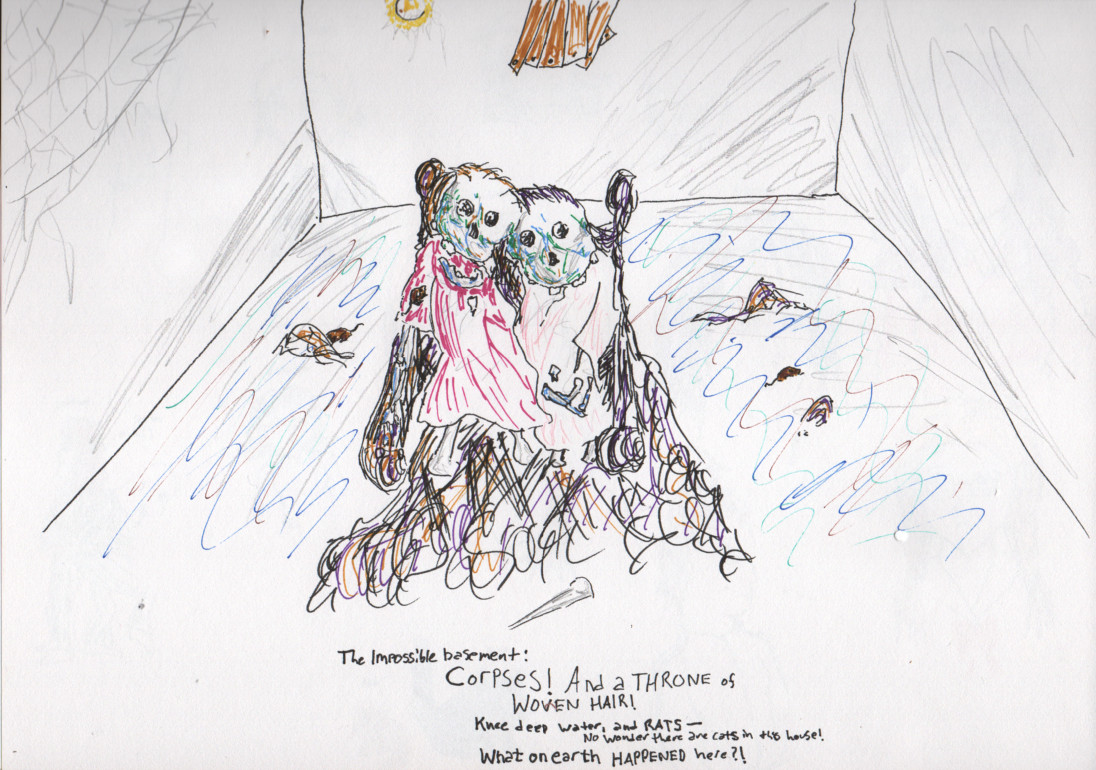 The Impossible basement:
Corpses! And a THRONE of
WOVEN HAIR!
Knee deep water, and RATS—
No wonder there are cats in this house!
What on earth HAPPENED here?!